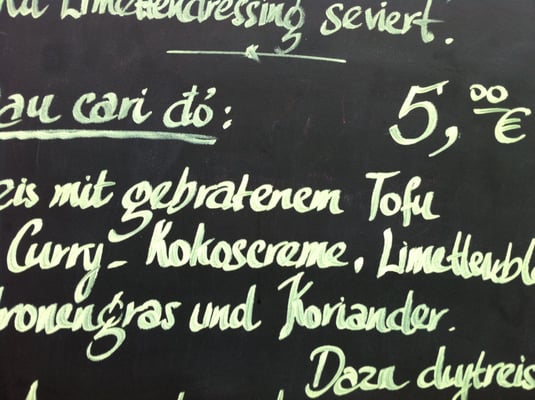 Limettendressing seviert.
au cari đỏ: 5,00 €
eis mit gebratenem Tofu
Curry- Kokoscreme, Limettenbl
ronengras und Koriander.
Dazu duftreis